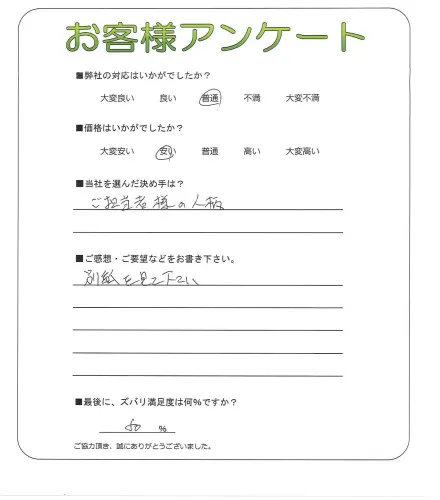 お客様アンケート
■弊社の対応はいかがでしたか？
大変良い 良い 普通 不満 大変不満
■価格はいかがでしたか？
大変安い 安い 普通 高い 大変高い
■当社を選んだ決め手は？
ご担当者様の人柄
■ご感想・ご要望などをお書き下さい。
別紙を見て下さい
■最後に、ズバリ満足度は何％ですか？
％
ご協力頂き、誠にありがとうございました。